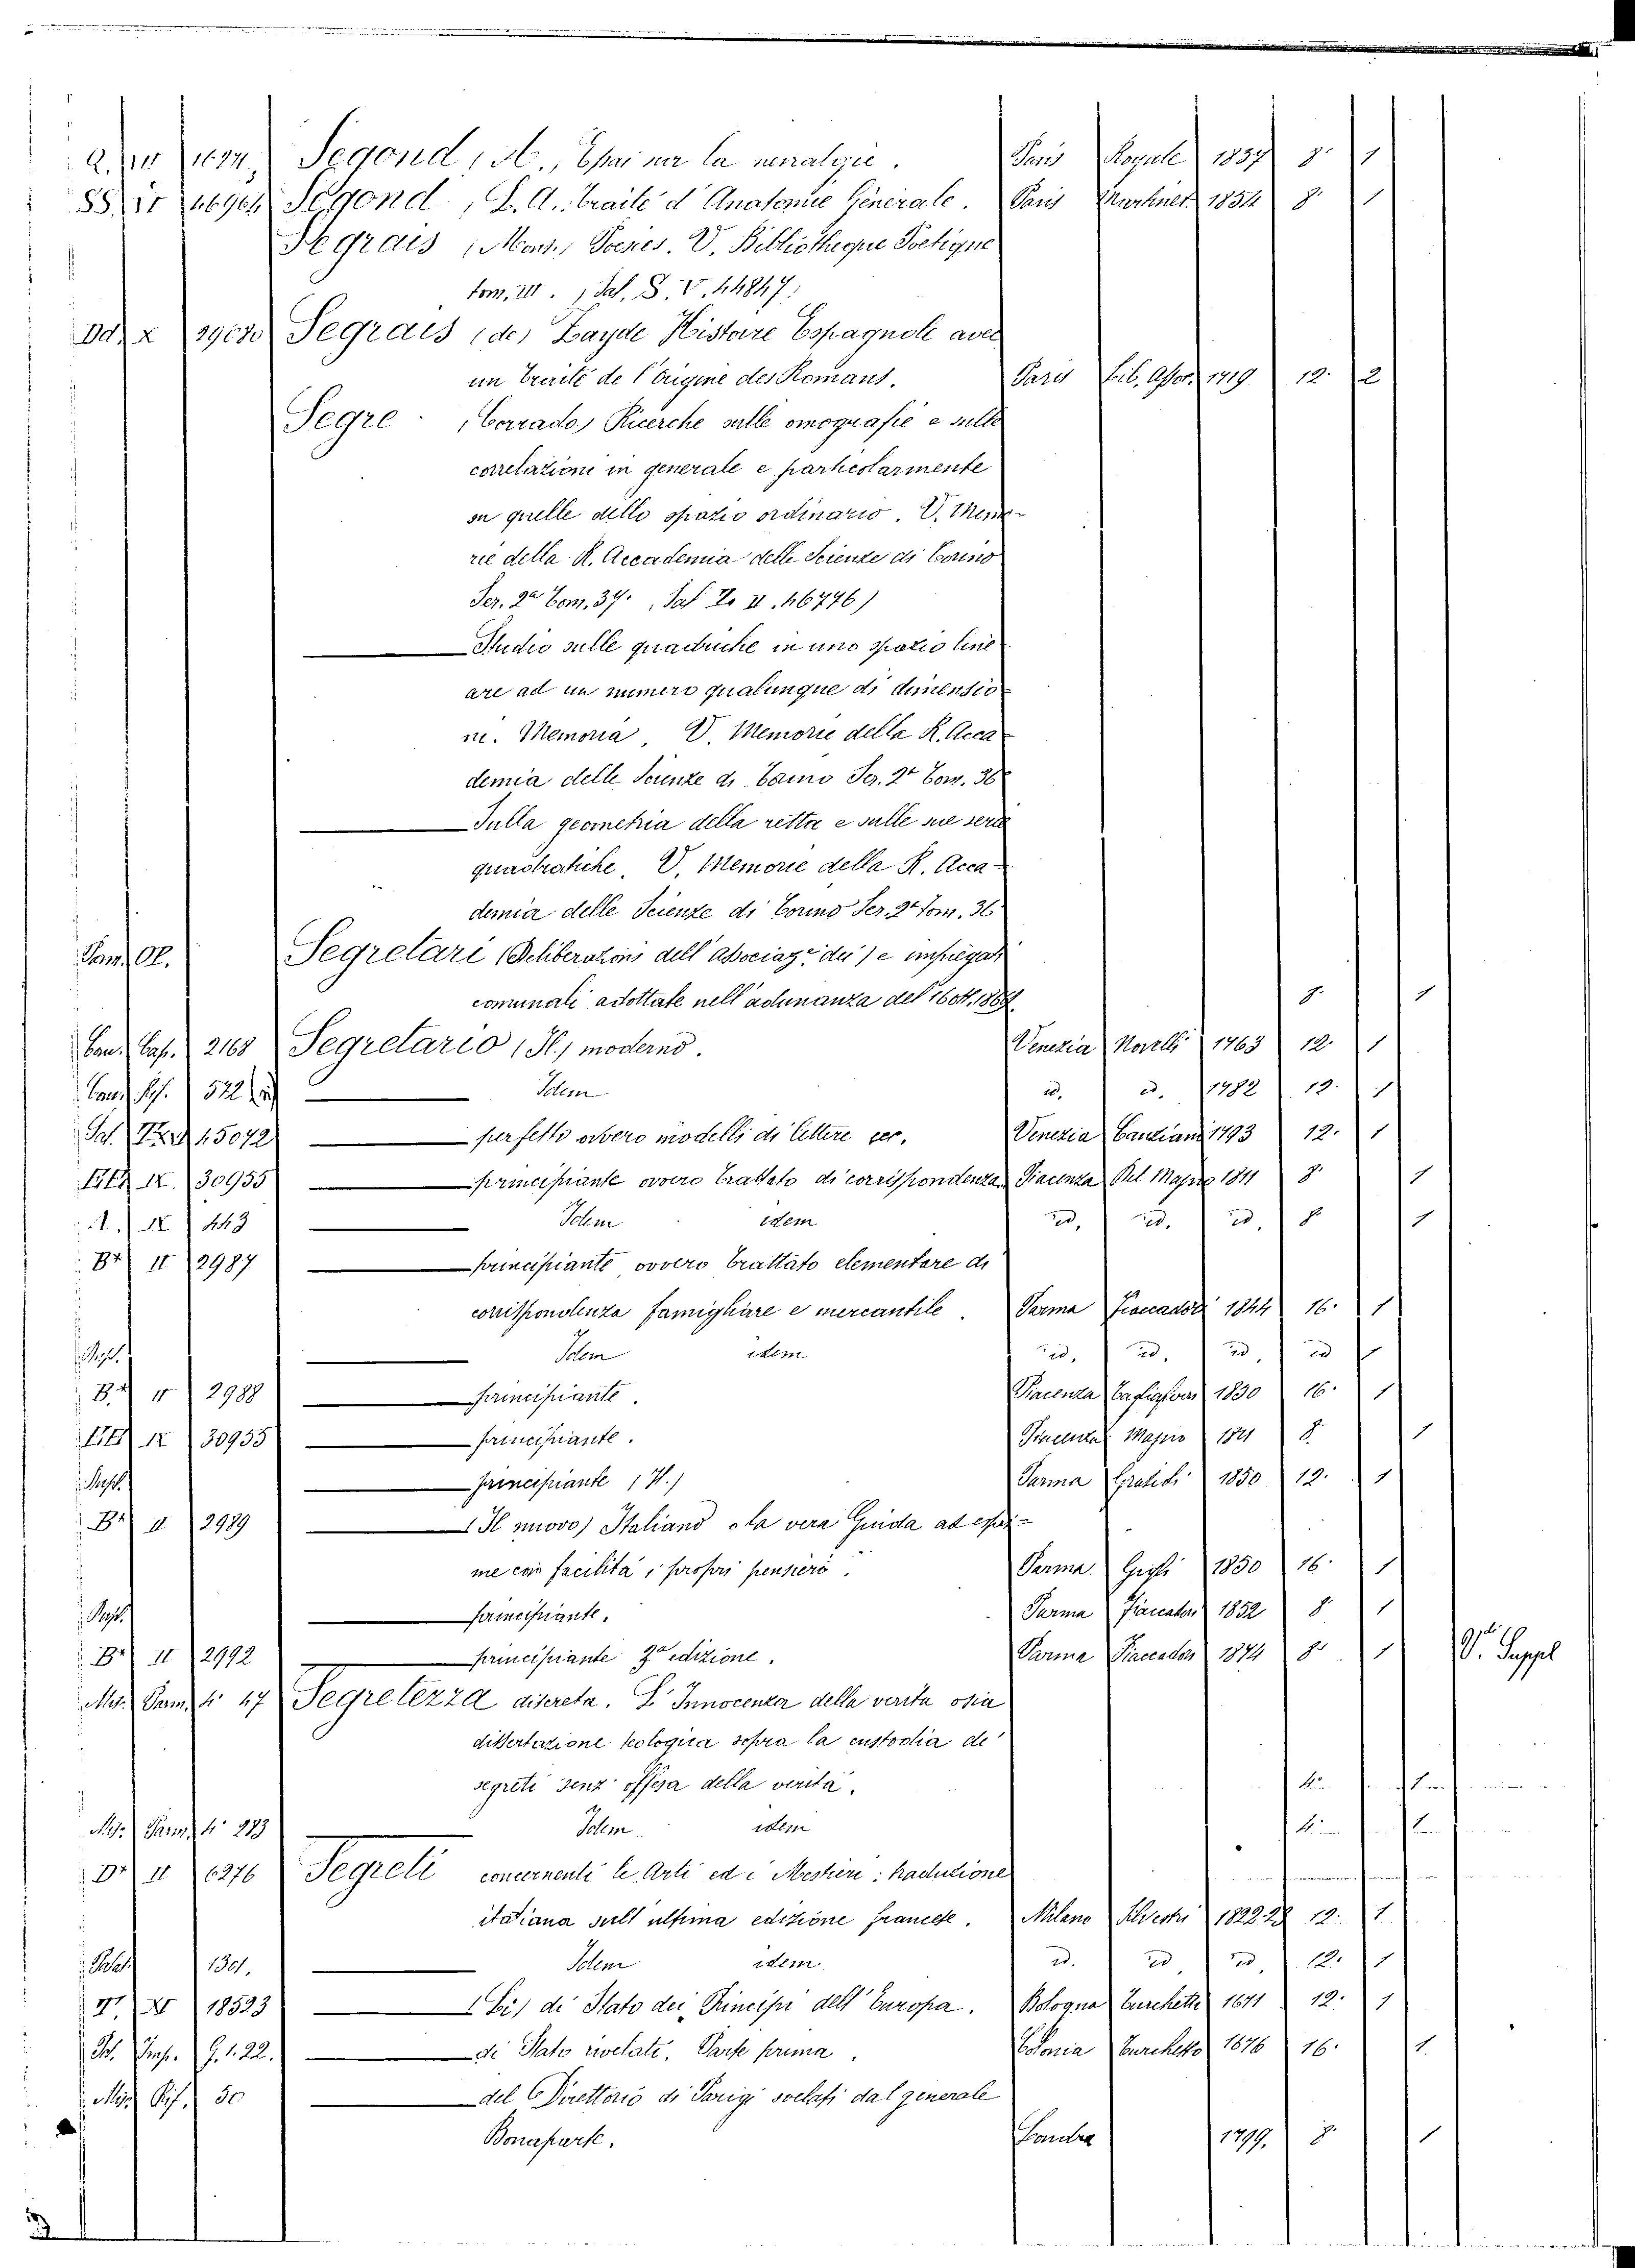 Q. III 1694 Segond, A., Essai sur la nevralgie. Paris Royale 1837 8.° 1
SS. II 46904 Segond, L. A. Traité d'Anatomie Génerale. Paris 1854 8.° 1
Segrais, Mons., Poesies. V. Bibliotheque Poetique
tom. III. (Sal. S. V. 44847)
Dd. X Segrais (de) Zayde Histoire Espagnole avec
un Traité de l'Origine des Romans. Paris Lib. Assoc. 1719. 12.° 2
Segre (Corrado) Ricerche sulle omografie e sulle
correlazioni in generale e particolarmente
su quelle dello spazio ordinario. V. Memo-
rie della R. Accademia delle Scienze di Torino
Ser. 2a Tom. 37. (Sal Z. II. 46776)
Studio sulle quadriche in uno spazio line
are ad un numero qualunque di dimensio
ni. Memoria. V. Memorie della R. Acca
demia delle Scienze di Torino Ser. 2a Tom. 36
Sulla geometria della retta e sulle sue serie
quadratiche. V. Memorie della R. Acca-
demia delle Scienze di Torino Ser. 2a Tom. 36
Pam. Ol. Segretari (Deliberazioni dell'Associaz. dei) e impiegati
comunali adottate nell'adunanza del 16 ott. 8.° 1
Can. Cas. 2168 Segretario (Il) moderno. Venezia Novelli 1763 12.° 1
572 Idem id. id. 1782 12.° 1
Sal. 45072 perfetto ovvero modelli di lettere ec. Venezia 1793 12.° 1
IX. 30955 principiante ovvero Trattato di corrispondenza Piacenza Del Majno 1811 8.° 1
A. IX 443 Idem idem id. id. id. 8.° 1
B* II 2987 principiante ovvero Trattato elementare di
corrispondenza famigliare e mercantile. Parma Fiaccadori 1844 16.° 1
Suppl. Idem idem id. id. id. id 1
B* II 2988 principiante. Piacenza 1830 16.° 1
IX 30955 principiante. Piacenza Majno 1821 8.° 1
Suppl. principiante (Il) Parma Grazioli 1850 12.° 1
B* II 2989 (Il nuovo) Italiano o la vera Guida ad espri-
me con facilità i propri pensieri. Parma Gigli 1850 16.° 1
Suppl. principiante. Parma Fiaccadori 1852 8.° 1
B* II 2992 principiante 3a edizione. Parma Fiaccadori 1874 8.° 1 V.i Suppl
Ms. Parm. n.° 47 Segretezza discreta. L'Innocenza della verità osia
dissertazione teologica sopra la custodia de'
segreti senz'offesa della verità. 4.° 1
Ms. Parm. n.° 283 Idem idem 4.° 1
D* II 6276 Segreti concernenti le Arti ed i Mestieri: traduzione
italiana sull'ultima edizione francese. Milano Silvestri 1822-28 12.° 1
Palat. 1301. Idem idem id. id id. 12.° 1
XI 18523 (Li) di Stato dei Principi dell'Europa. Bologna Turchetto 1671 12.° 1
G. I. 22. di Stato rivelati. Parte prima. Colonia Turchetto 1676 16.° 1.
30 del Direttorio di Parigi svelati dal generale
Bonaparte. Londra 1799. 8.° 1